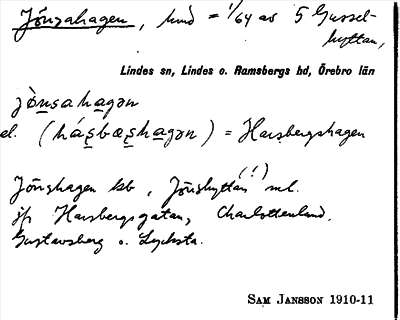 Jönsahagen, hmd = 1/64 av 5 Gussel-
hyttan,
Lindes sn, Lindes o. Ramsbergs bd, Örebro län
jö̀nsahagən
el. (há̱sbæşhagən) = Harsbergshagen
Jönshagen kb, Jönshyttan (!) ml.
jfr Harsbergsgatan, Charlottenlund,
Gustavsberg o. Lycksta.
SAM JANSSON 1910-11